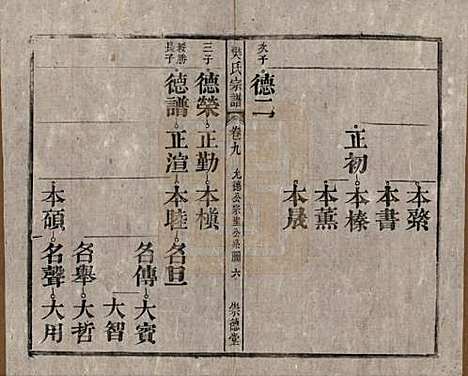 本
本書
正初本榛
本薰
本晟
次子
德二
吳氏宗譜 卷九 允德公宗 公系圖 六 崇德堂
三子
德榮正勤本槙
長子
德譜正渲本睦名旦
名傳大賓
大智
名舉大哲
本碩名聲大用